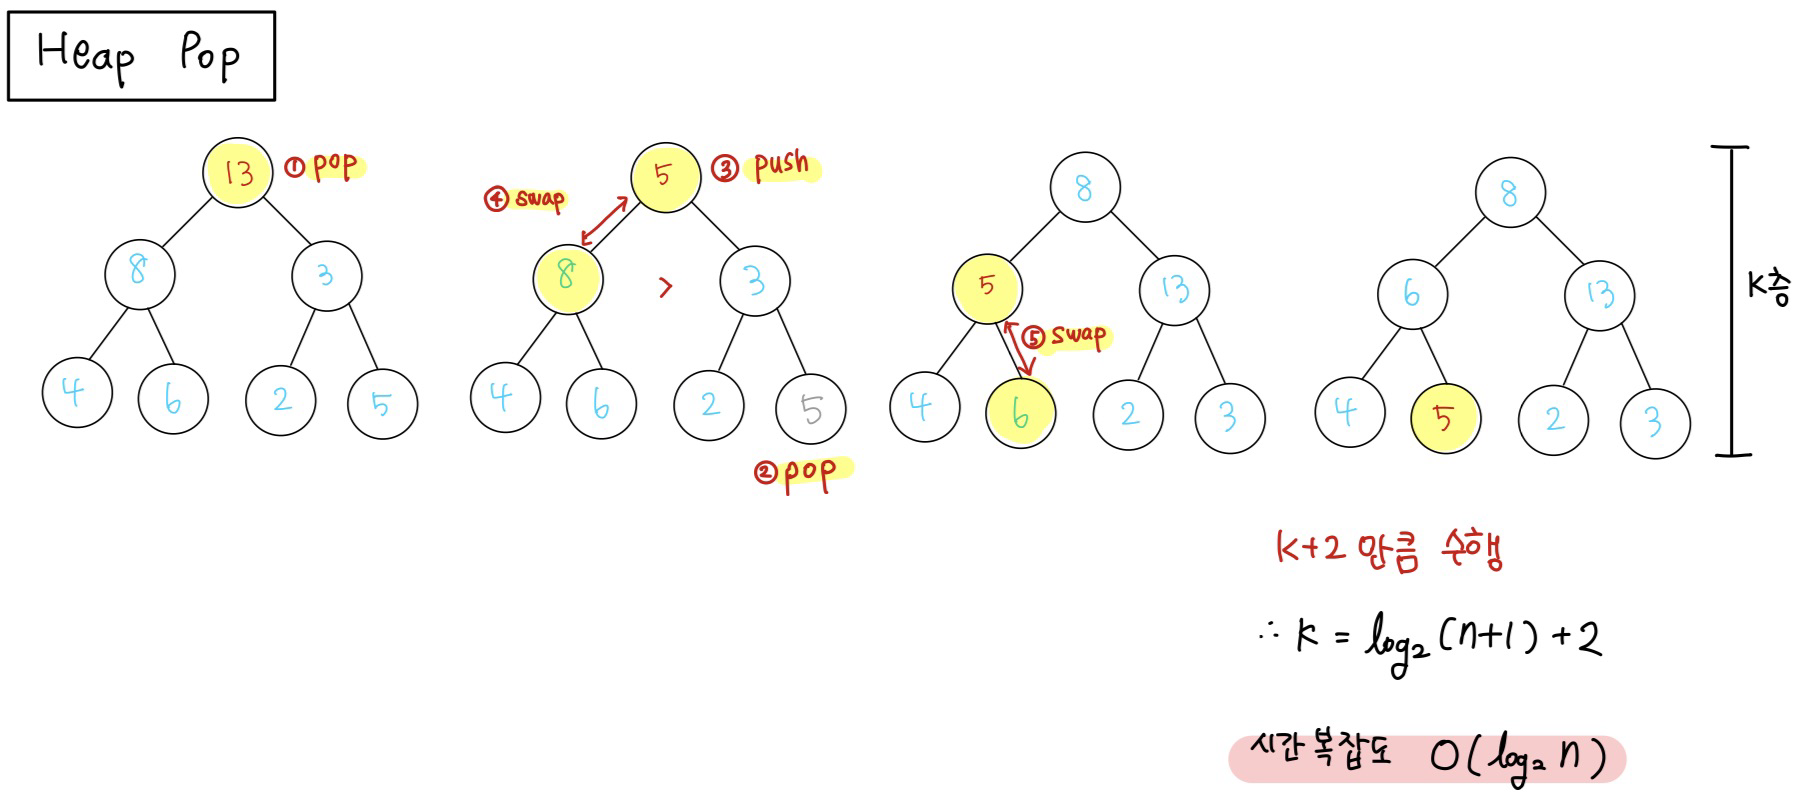 Heap Pop
13 ① pop
8 3
4 6 2 5
5 ③ push
④ swap
8 > 3
4 6 2 5
② pop
8
5 13
⑤ swap
4 6 2 3
8
6 13
4 5 2 3
K층
K+2 만큼 수행
∴ K = log₂(n+1) + 2
시간 복잡도 O(log₂ n)